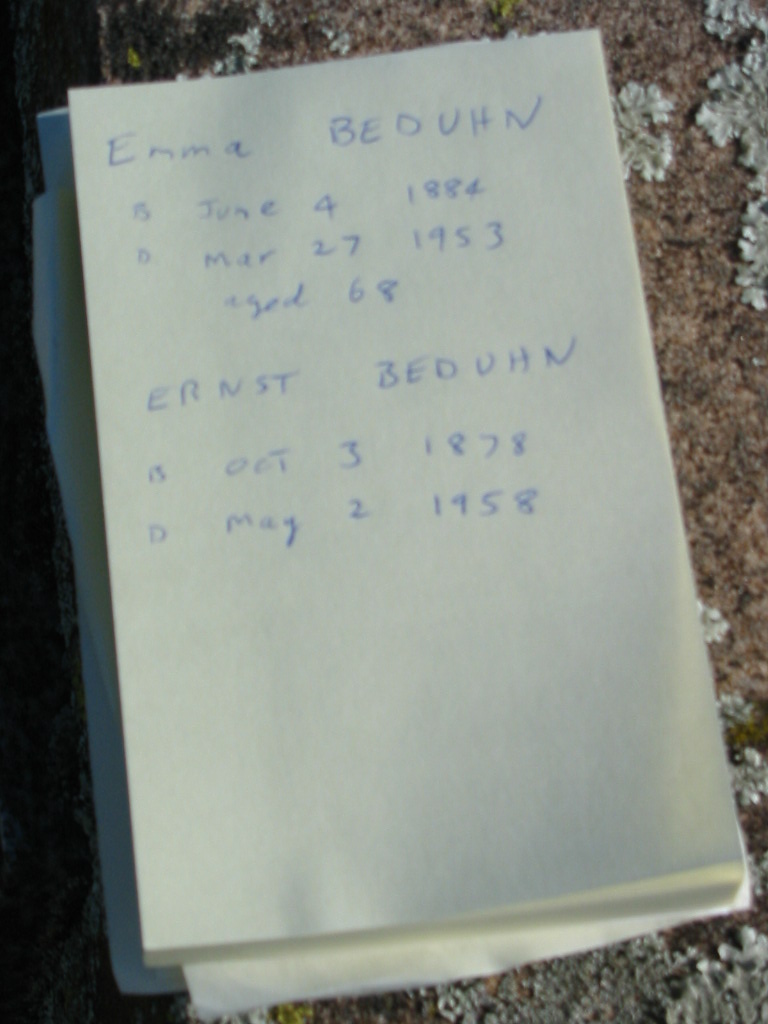 Emma BEDUHN
B June 4 1884
D Mar 27 1953
aged 68
ERNST BEDUHN
B OCT 3 1878
D May 2 1958